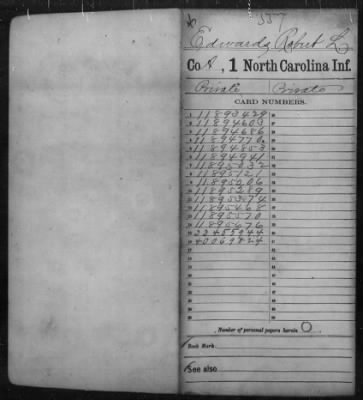 557
Edwards, Robert L
Co A, 1 North Carolina Inf.
Private | Private
CARD NUMBERS.
1 11893429
2 11894603
3 11894686
4 11894770
5 11894853
6 11894941
7 11895032
8 11895121
9 11895206
10 11895289
11 11895374
12 11895468
13 11895570
14 11895676
15 22455944
16 40069824
Number of personal papers herein 0
Book Mark:
See also